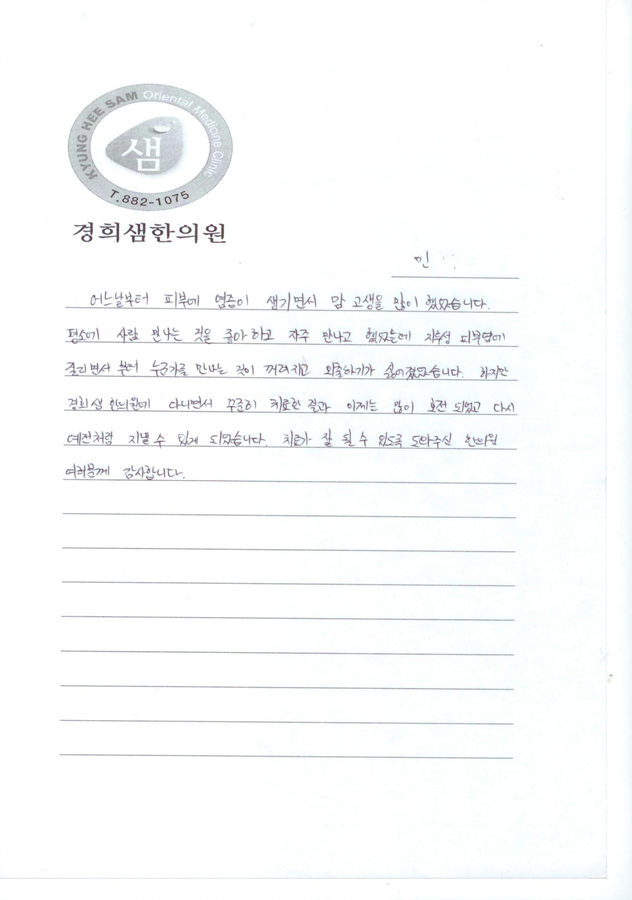 KYUNG HEE SAM Oriental Medicine Clinic
샘
T.882-1075
경희샘한의원
인
어느날부터 피부에 염증이 생기면서 맘 고생을 많이 했었습니다.
평소에 사람 만나는 것을 좋아하고 자주 만나고 했었는데 지루성 피부염에
걸리면서 부터 누군가를 만나는 것이 꺼려지고 외출하기가 싫어졌었습니다. 하지만
경희샘 한의원에 다니면서 꾸준히 치료한 결과 이제는 많이 호전 되었고 다시
예전처럼 지낼 수 있게 되었습니다. 치료가 잘 될 수 있도록 도와주신 한의원
여러분께 감사합니다.